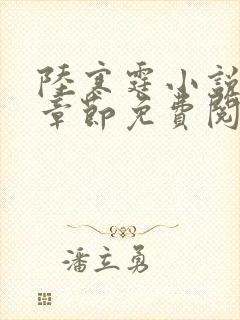 陸寒霆小說
章節免費閱
潘立勇